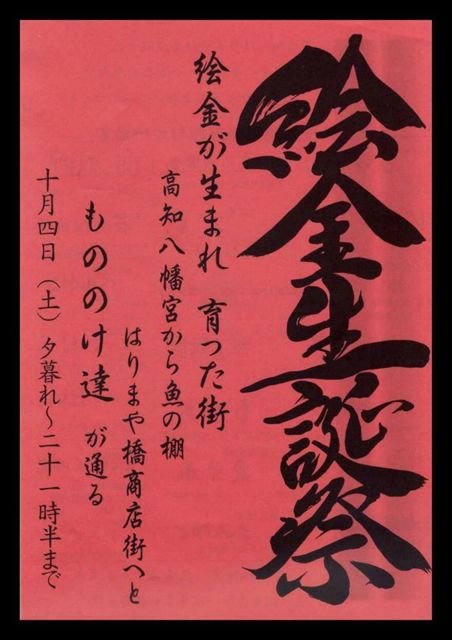 絵金生誕祭
絵金が生まれ 育った街
高知八幡宮から魚の棚
はりまや橋商店街へと
もののけ達 が通る
十月四日（土）夕暮れ～二十一時半まで